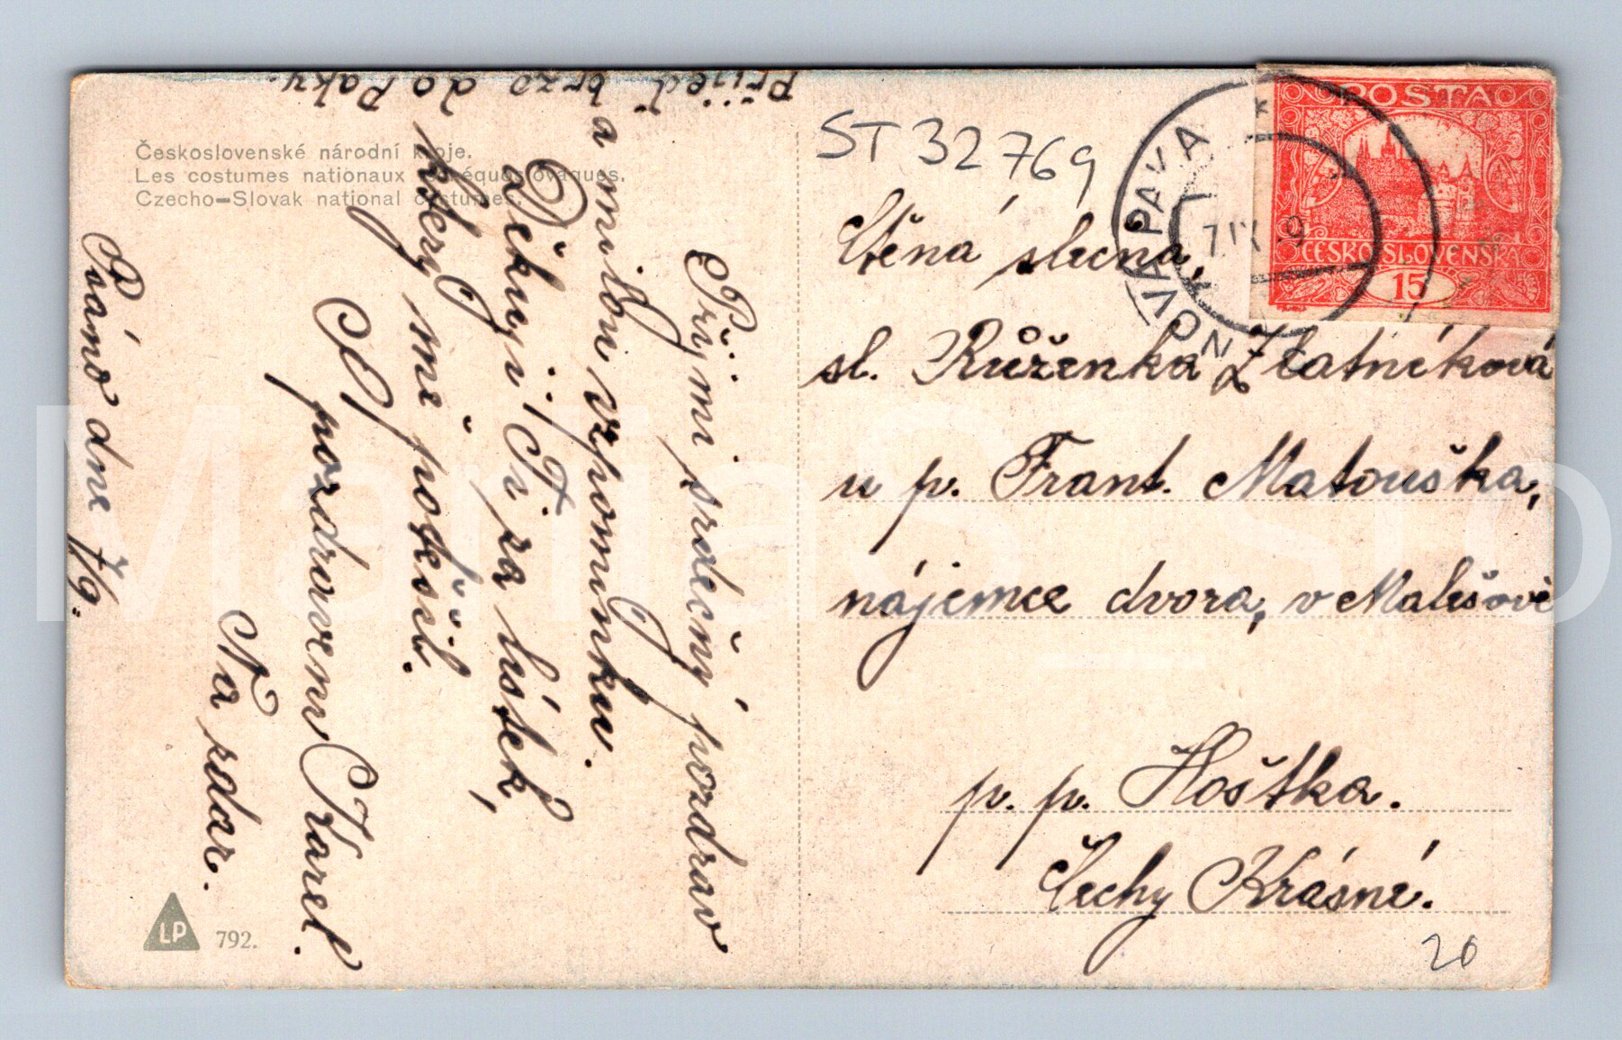 přijeď brzo do Paky.
Československé národní kroje.
Les costumes nationaux tchéquoslovaques.
Czecho-Slovak national costumes.
Přijmi srdečný pozdrav
a milou vzpomínku.
Děkuji Ti za lístek,
který mě potěšil.
S pozdravem Karel.
Na zdar.
Psáno dne 7/9.
LP 792.
ST 32769
NOVÁ PAKA
7 IX 9
POŠTA
ČESKO SLOVENSKÁ
15
Ctěná slečna,
sl. Růženka Zlatníková
u p. Frant. Matouška,
nájemce dvora, v Malešově
p. p. Hoštka.
Čechy Krásné.
20